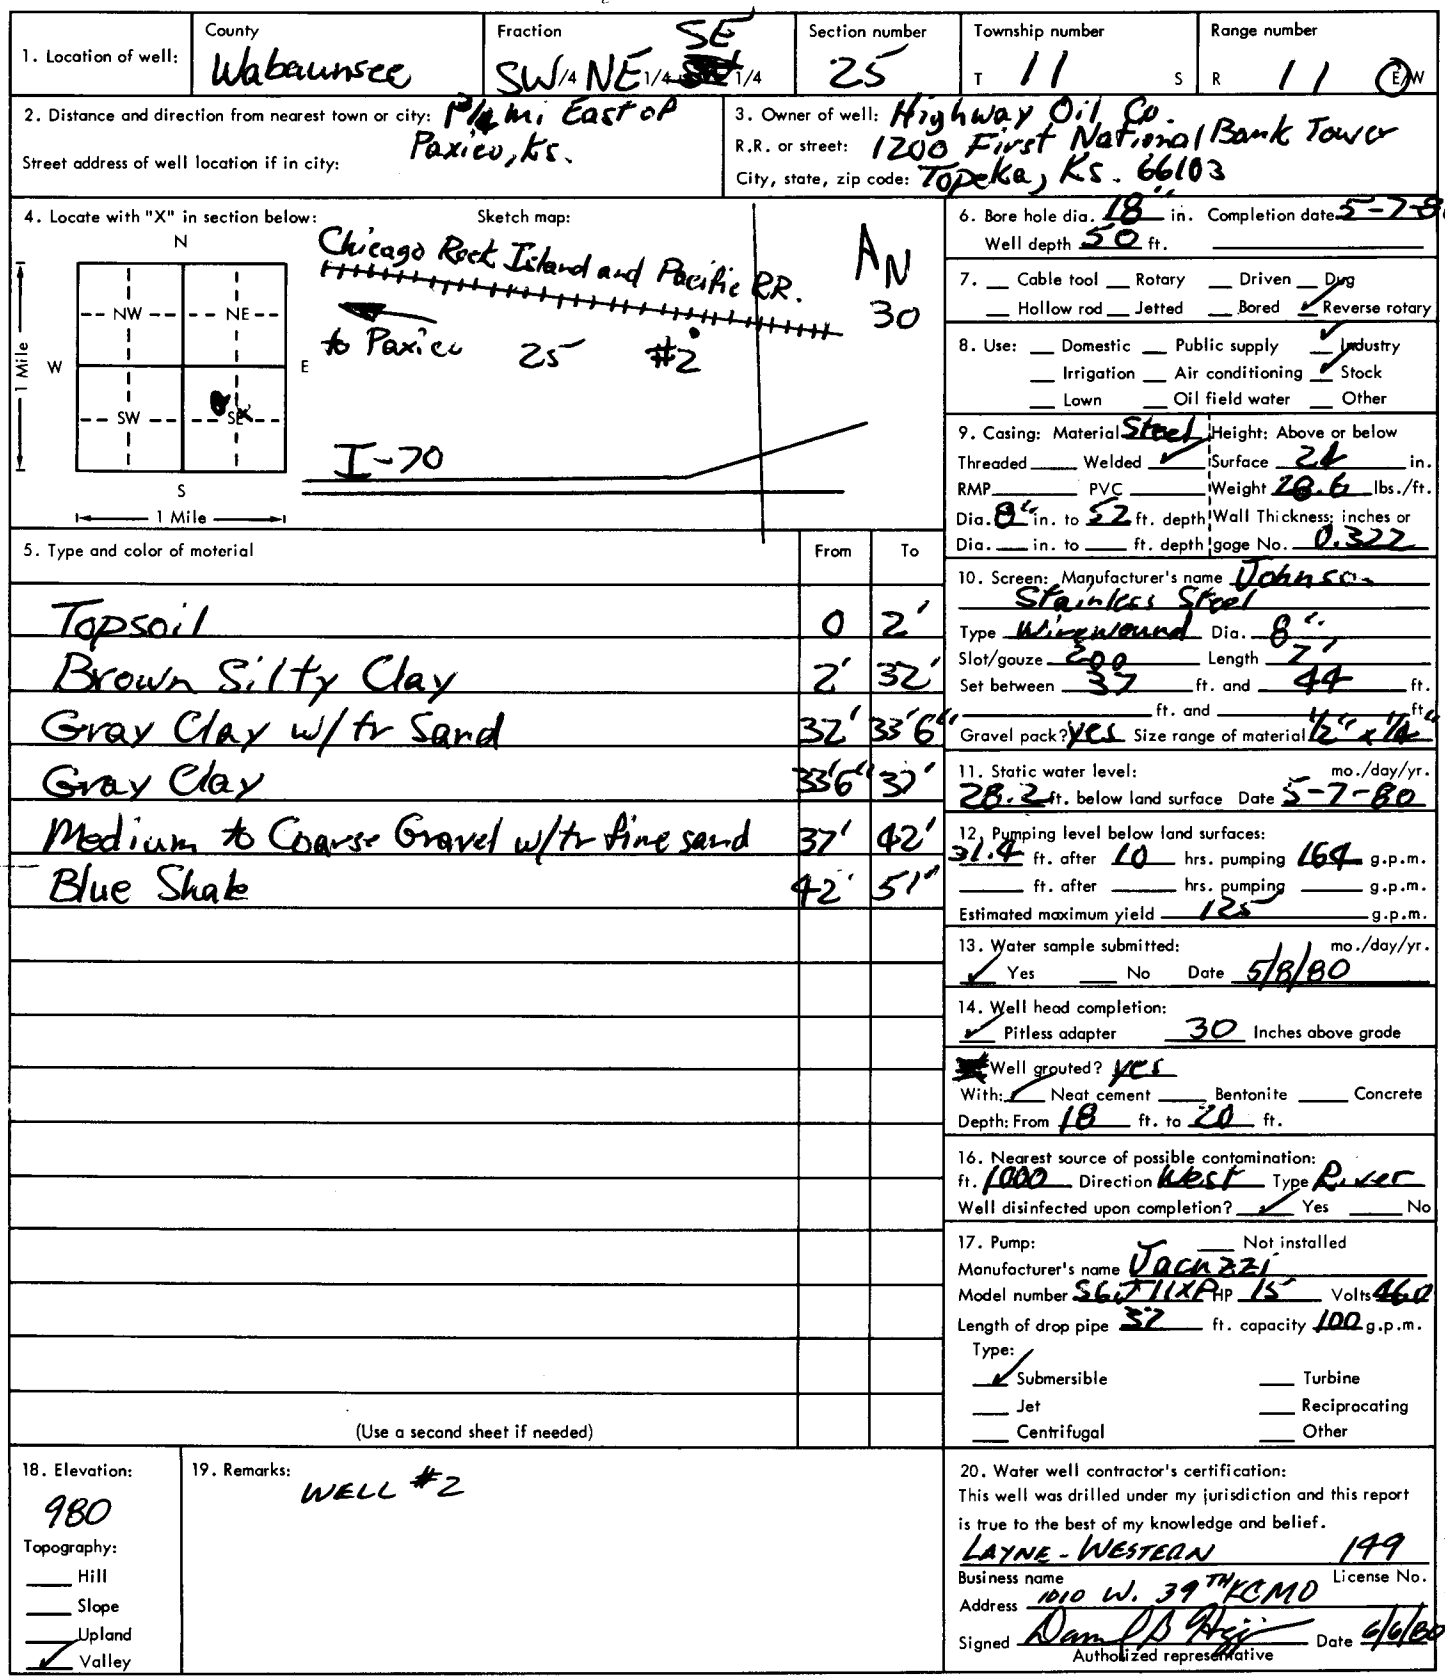 1. Location of well: County Wabaunsee Fraction SW 1/4 NE 1/4 SE 1/4 Section number 25 Township number T 11 S Range number R 11 E/W
2. Distance and direction from nearest town or city: mi East of
Paxico, Ks.
Street address of well location if in city:
3. Owner of well: Highway Oil Co.
R.R. or street: 1200 First National Bank Tower
City, state, zip code: Topeka, Ks. 66103
4. Locate with "X" in section below: Sketch map:
N
NW NE
W E
SW SE
S
1 Mile
1 Mile
Chicago Rock Island and Pacific RR.
to Paxico 25 #2
I-70
AN
30
5. Type and color of material From To
Topsoil 0 2'
Brown Silty Clay 2' 32'
Gray Clay w/tr Sand 32' 33'6"
Gray Clay 33'6" 37'
Medium to Coarse Gravel w/tr fine sand 37' 42'
Blue Shale 42' 51'
(Use a second sheet if needed)
6. Bore hole dia. 18" in. Completion date 5-7-8
Well depth 50 ft.
7. Cable tool Rotary Driven Dug
Hollow rod Jetted Bored ✓ Reverse rotary
8. Use: Domestic Public supply ✓ Industry
Irrigation Air conditioning ✓ Stock
Lawn Oil field water Other
9. Casing: Material Steel Height: Above or below
Threaded Welded ✓ Surface 24 in.
RMP PVC Weight 28.6 lbs./ft.
Dia. 8" in. to 52 ft. depth Wall Thickness: inches or
Dia. in. to ft. depth gage No. 0.322
10. Screen: Manufacturer's name Johnson
Stainless Steel
Type Wirewound Dia. 8"
Slot/gauze 200 Length 7'
Set between 37 ft. and 44 ft.
ft. and ft.
Gravel pack? yes Size range of material 1/2" x 1/4"
11. Static water level: mo./day/yr.
28.2 ft. below land surface Date 5-7-80
12. Pumping level below land surfaces:
31.4 ft. after 10 hrs. pumping 164 g.p.m.
ft. after hrs. pumping g.p.m.
Estimated maximum yield 125 g.p.m.
13. Water sample submitted: mo./day/yr.
✓ Yes No Date 5/8/80
14. Well head completion:
✓ Pitless adapter 30 Inches above grade
Well grouted? yes
With: ✓ Neat cement Bentonite Concrete
Depth: From 18 ft. to 20 ft.
16. Nearest source of possible contamination:
ft. 1000 Direction West Type River
Well disinfected upon completion? ✓ Yes No
17. Pump: Not installed
Manufacturer's name Jacuzzi
Model number S6J11XP HP 15 Volts 460
Length of drop pipe 37 ft. capacity 100 g.p.m.
Type:
✓ Submersible Turbine
Jet Reciprocating
Centrifugal Other
18. Elevation:
980
Topography:
Hill
Slope
Upland
✓ Valley
19. Remarks: WELL #2
20. Water well contractor's certification:
This well was drilled under my jurisdiction and this report
is true to the best of my knowledge and belief.
LAYNE-WESTERN 149
Business name License No.
Address 1010 W. 39TH KCMO
Signed Date 6/6/80
Authorized representative